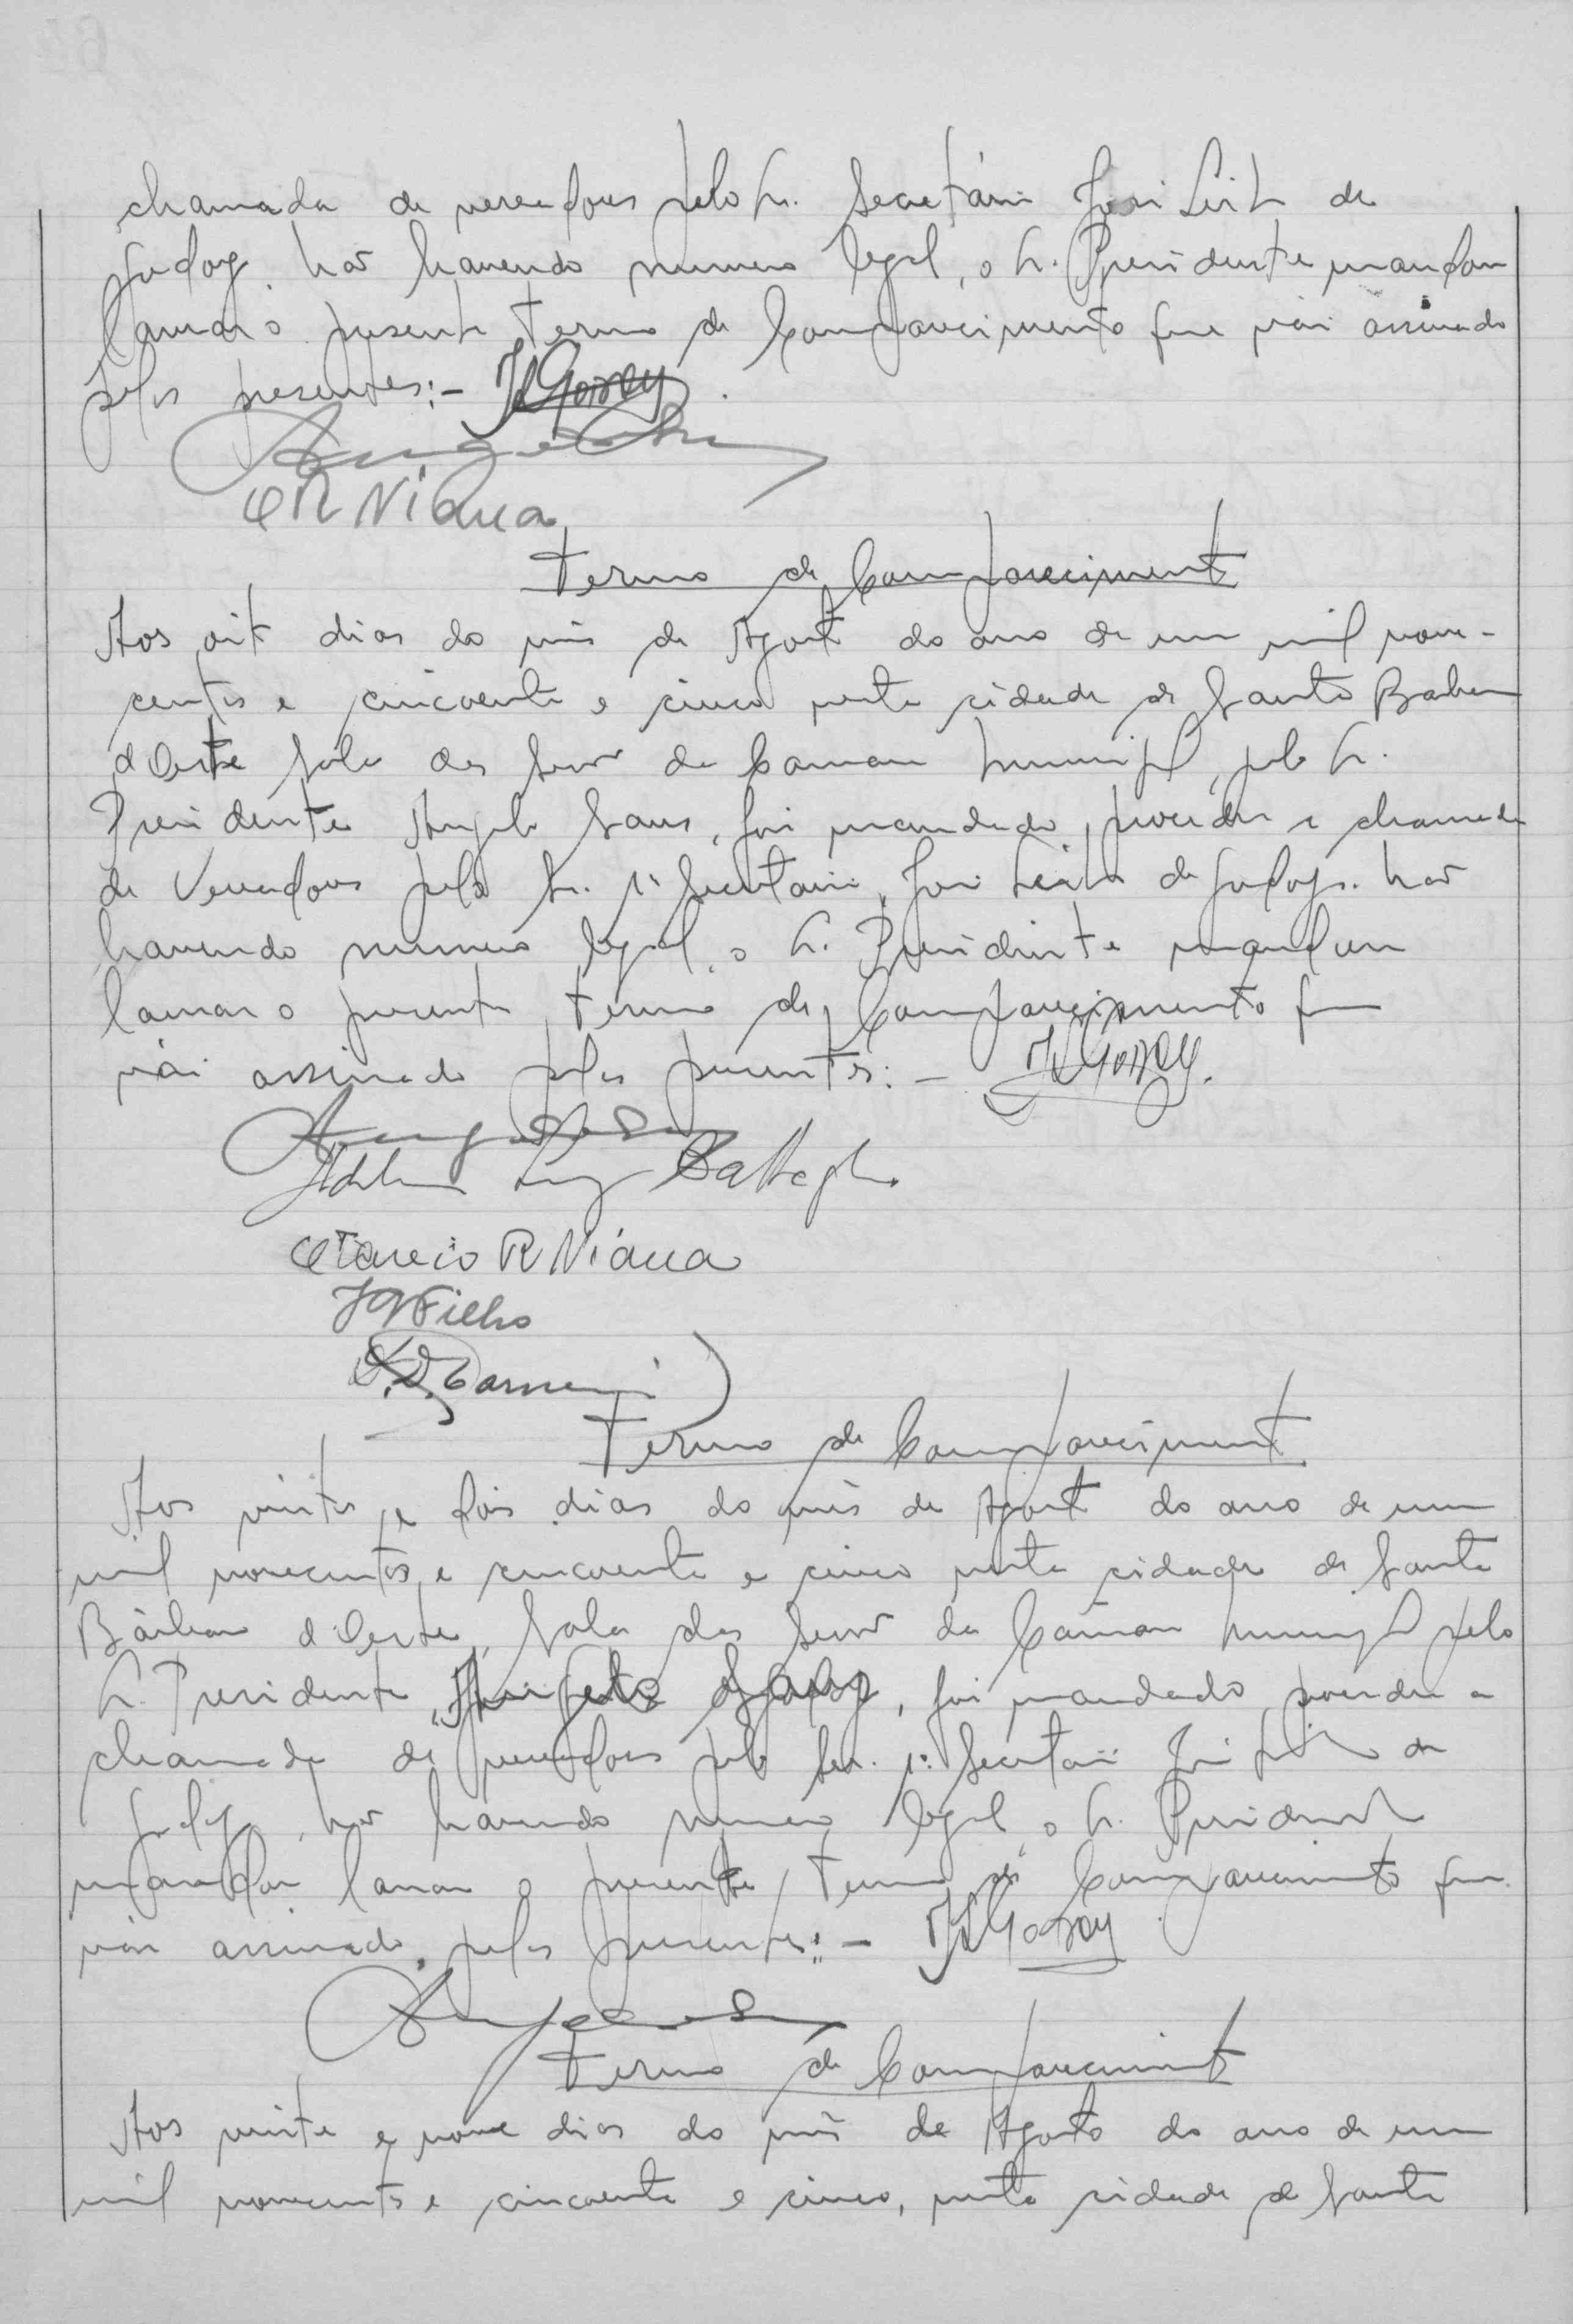 chamada de vereadores pelo Sr. Secretário José Leite de
Godoy. Não havendo numero legal, o Sr. Presidente mandou
lavrar o presente termo de Comparecimento que vai assinado
pelos presentes:- JLGodoy.
O R Viana
Termo de Comparecimento
Aos oito dias do mês de Agosto do ano de um mil nove-
centos e cincoenta e cinco nesta cidade de Santa Barbara
d'Oeste Sala das Sessões da Camara Municipal, pelo Sr.
Presidente Angelo Sans, foi mandado proceder a chamada
de Vereadores pelo Sr. 1º Secretario, José Leite de Godoy. Não
havendo numero legal, o Sr. Presidente mandou
lavrar o presente termo de Comparecimento que
vai assinado pelos presentes:- JLGodoy.
Luiz Battagli
Otavio R Viana
Filho
Termo de Comparecimento
Aos vinte e dois dias do mês de Agosto do ano de um
mil novecentos e cincoenta e cinco nesta cidade de Santa
Bárbara d'Oeste, Sala das Sessões da Câmara Municipal pelo
Sr. Presidente, Angelo Sans, foi mandado proceder a
chamada de vereadores pelo Snr. 1º Secretario José Leite de
Godoy. Não havendo numero legal o Sr. Presidente
mandou lavrar o presente termo de Comparecimento que
vai assinado pelos presentes:- JLGodoy
Termo de Comparecimento
Aos vinte e nove dias do mês de Agosto do ano de um
mil novecentos e cincoenta e cinco, nesta cidade de Santa